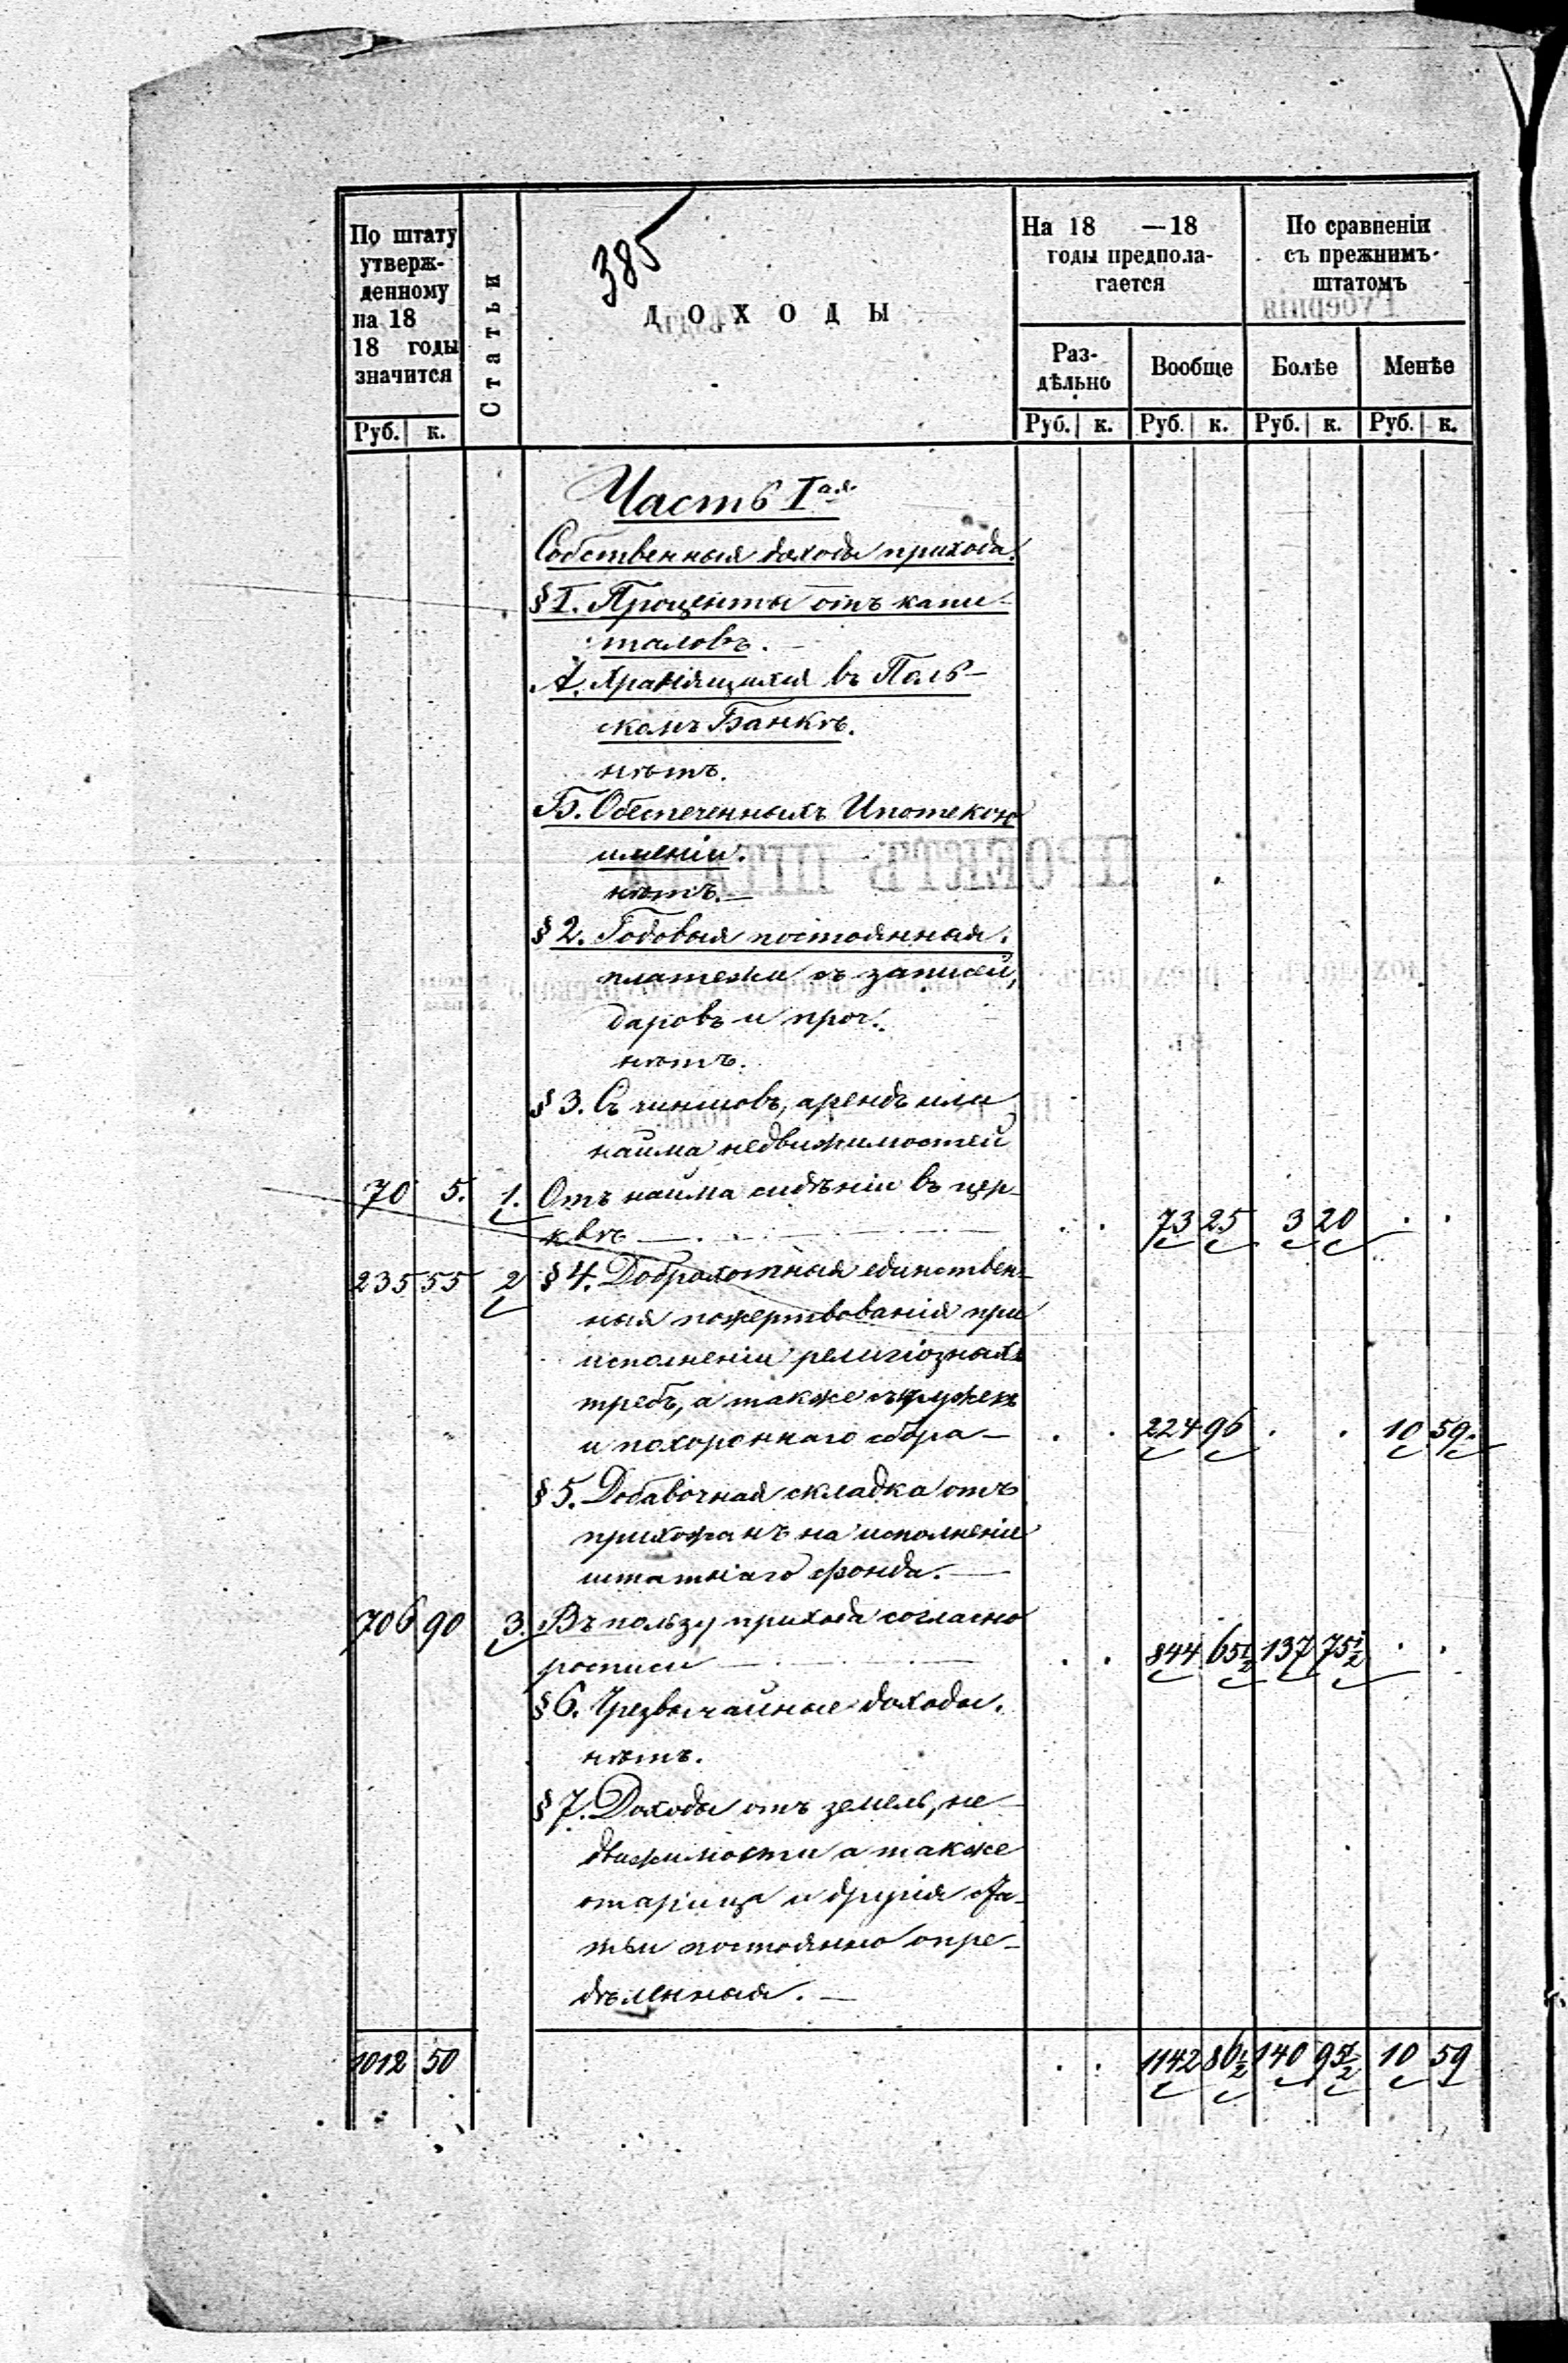 385
По штату
утверж-
денному
на 18
18 годы
значится
Статьи
ДОХОДЫ
На 18 —18
годы предпола-
гается
По сравненіи
съ прежнимъ
штатомъ
Раз-
дѣльно
Вообще
Болѣе
Менѣе
Руб. к.
Руб. к. Руб. к. Руб. к. Руб. к.
Часть Iая
Собственныя доходы прихода.
§ I. Проценты отъ капи-
таловъ. –
А. Хранящихся въ Поль-
скомъ Банкѣ.
нѣтъ.
Б. Обеспеченныхъ Ипотекою
именіи.
нѣтъ. —
§ 2. Годовыя постоянныя
платежи съ записей,
даровъ и проч.
нѣтъ.
§ 3. Съ чиншовъ, арендъ или
найма недвижимостей
70 5. 1. Отъ найма сидѣніи въ цер-
квѣ — . . 73 25 3 20 . .
235 55 2 § 4. Доброхотныя единствен-
ныя пожертвованія при
исполненіи религіозныхъ
требъ, а также съ кружекъ
и похороннаго сбора – . . 224 96 . . 10 59.
§ 5. Добавочная складка отъ
прихожанъ на исполненіе
штатнаго фонда. —
706 90 3. Въ пользу прихода согласно
росписи — . . 844 65½ 137 75½ . .
§ 6. Чрезвычайные доходы.
нѣтъ.
§ 7. Доходы отъ земель, не-
движимости а также
и другія Ста-
тьи постоянно опре-
дѣленныя. —
1012 50 . . 1142 86½ 140 95½ 10 59